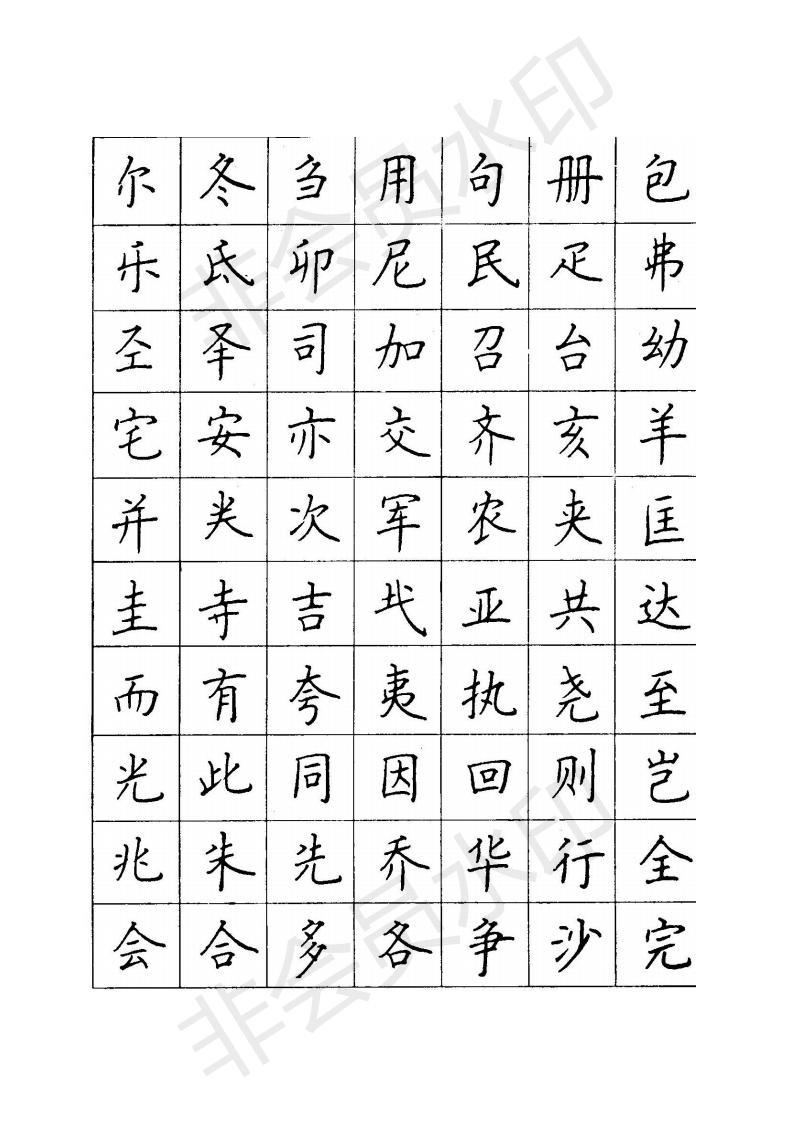 尔 冬 刍 用 句 册 包
乐 氐 卯 尼 民 疋 弗
圣 司 加 召 台 幼
宅 安 亦 交 齐 亥 羊
并 次 军 农 夹 匡
圭 寺 吉 亚 共 达
而 有 夸 夷 执 尧 至
光 此 同 因 回 则 岂
兆 朱 先 乔 华 行 全
会 合 多 各 争 沙 完
非会员水印
非会员水印